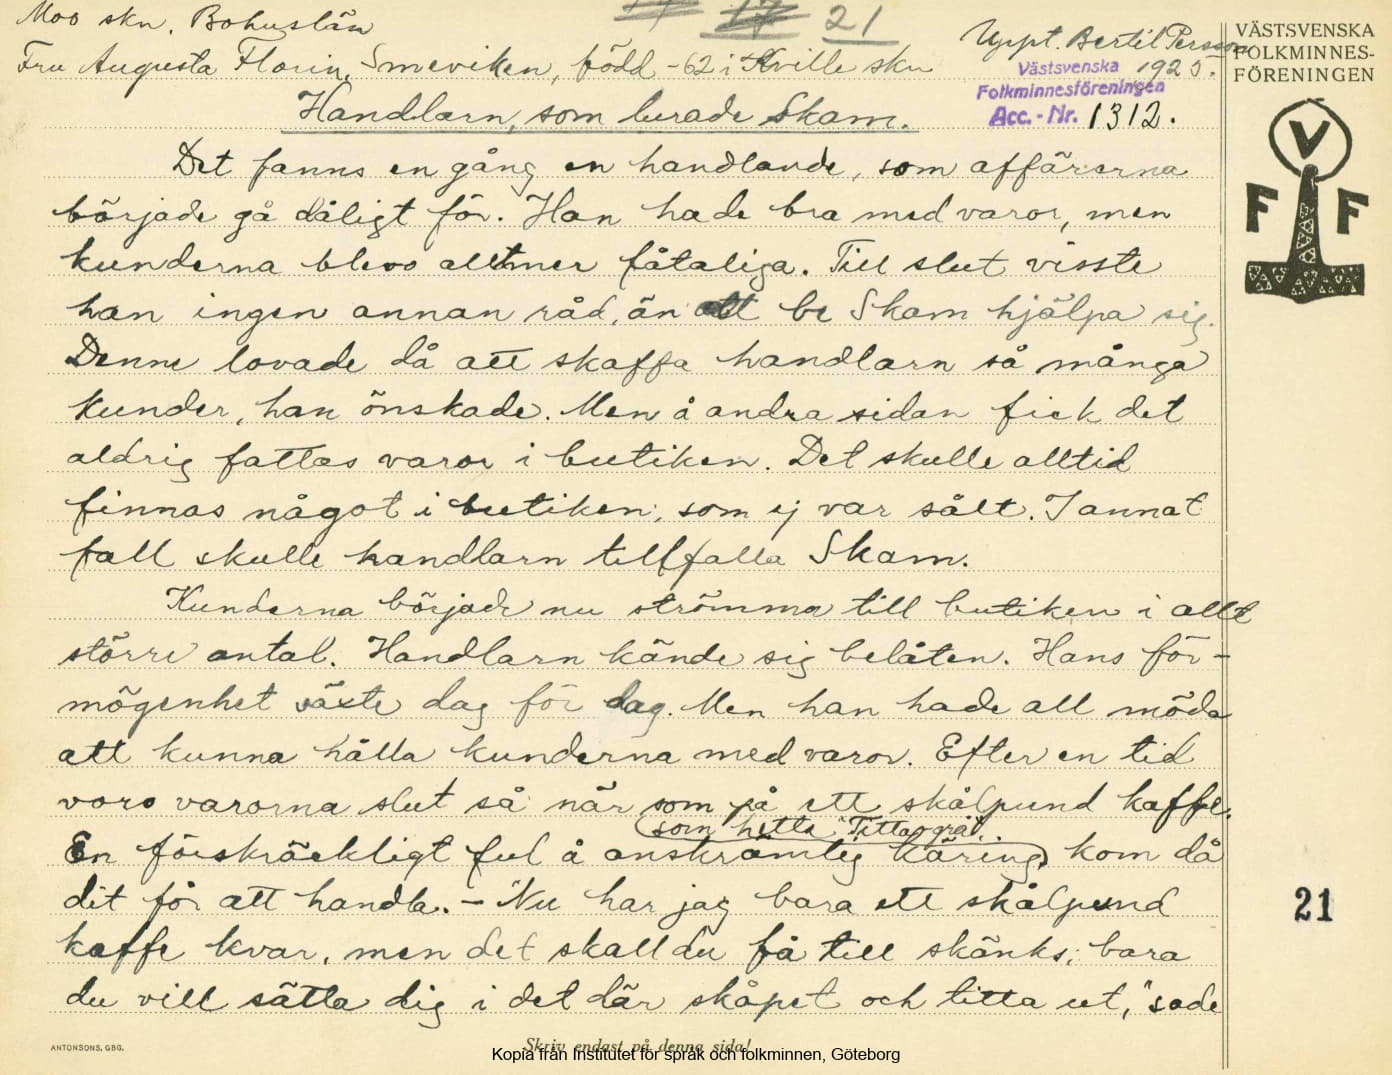 Moo skn. Bohuslän
21
Uppt. Bertil Persson
Fru Augusta Florin, Smeviken, född -62 i Kville skn
1925.
VÄSTSVENSKA
FOLKMINNES-
FÖRENINGEN
Västsvenska
Folkminnesföreningen
Acc.-Nr. 1312.
V
F F
Handlarn, som lurade Skam.
Det fanns en gång en handlande, som affärerna
började gå dåligt för. Han hade bra med varor, men
kunderna blevo alltmer fåtaliga. Till slut visste
han ingen annan råd, än att be Skam hjälpa sig.
Denne lovade då att skaffa handlarn så många
kunder, han önskade. Men å andra sidan fick det
aldrig fattas varor i butiken. Det skulle alltid
finnas något i butiken, som ej var sålt. I annat
fall skulle handlarn tillfalla Skam.
Kunderna började nu strömma till butiken i allt
större antal. Handlarn kände sig belåten. Hans för-
mögenhet växte dag för dag. Men han hade all möda
att kunna hålla kunderna med varor. Efter en tid
voro varorna slut så när som på ett skålpund kaffe.
(som hette "Tittapgråt")
En förskräckligt ful å anskrämlig käring, kom då
dit för att handla. - "Nu har jag bara ett skålpund
kaffe kvar, men det skall du få till skänks, bara
du vill sätta dig i det där skåpet och titta ut," sade
21
ANTONSONS, GBG.
Skriv endast på denna sida!
Kopia från Institutet för språk och folkminnen, Göteborg